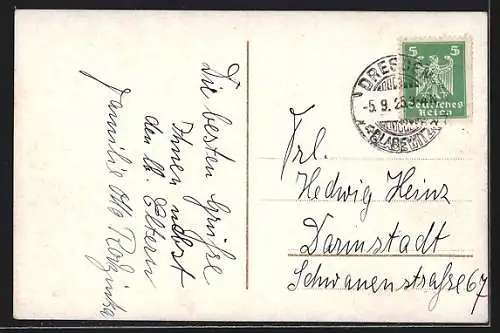 Die besten Grüße
Ihnen nebst
den lb. Eltern
Familie Otto
5 5
Deutsches
Reich
DRESDEN
-5. 9. 25
BLASEWITZ
Frl.
Hedwig Heinz
Darmstadt
Schwanenstraße 67